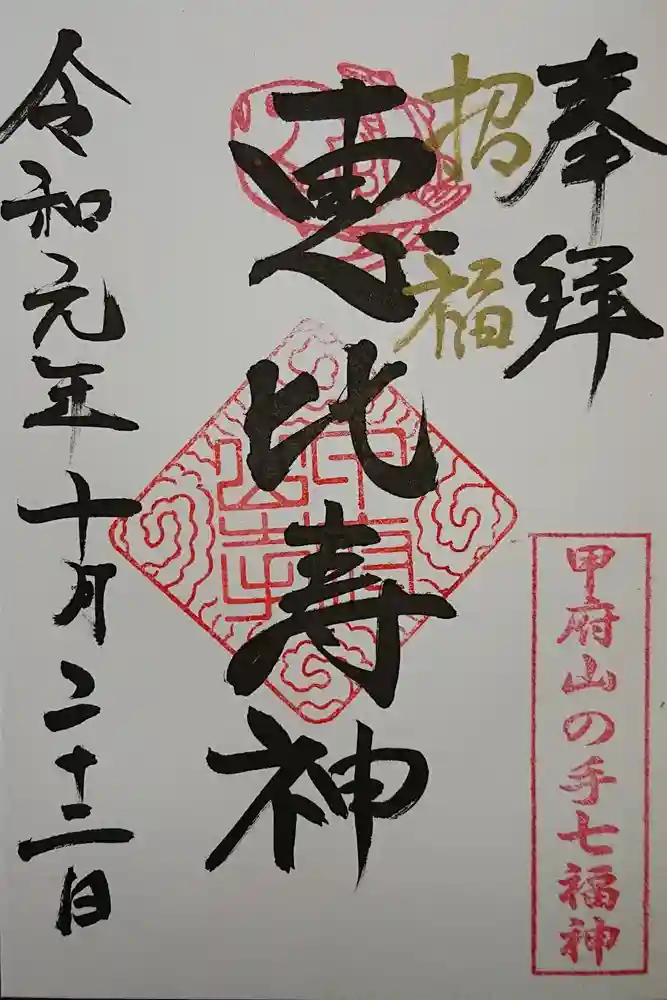 奉拝
招福
恵比寿神
甲府山の手七福神
令和元年十月二十二日